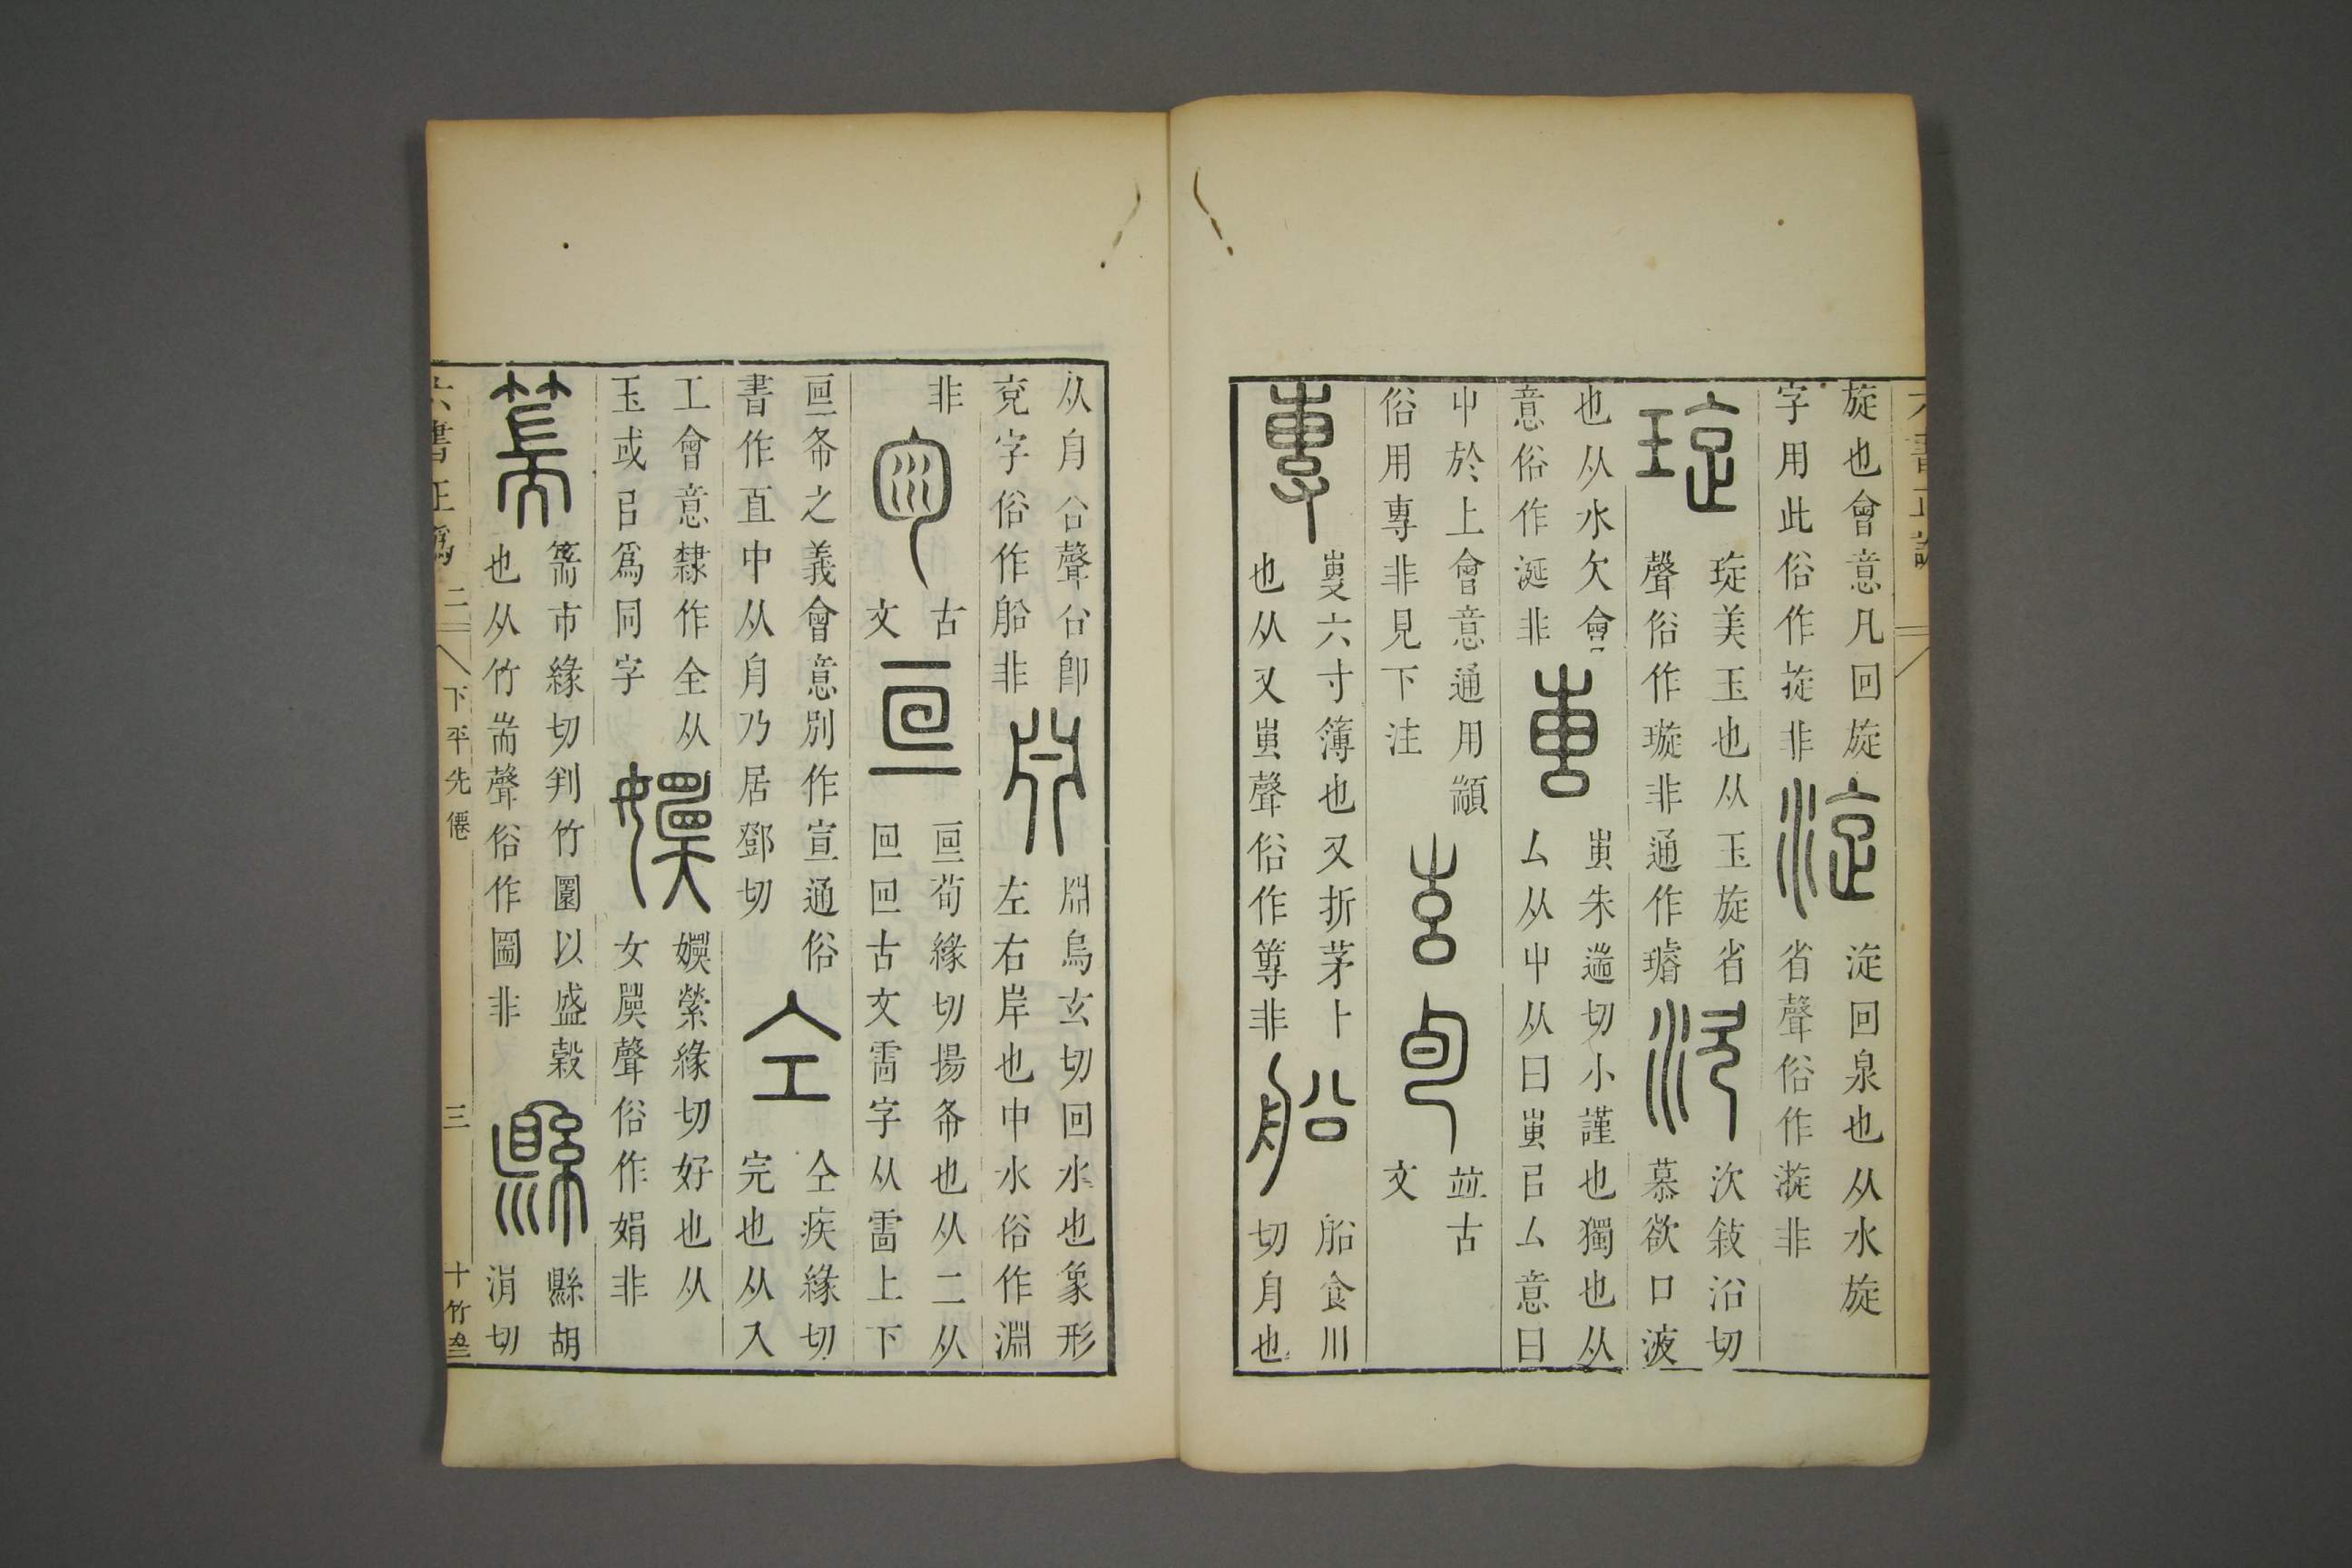 旋也會意凡回旋
字用此俗作㨬非
淀回泉也从水旋
省聲俗作漩非
琁美玉也从玉旋省
聲俗作璇非通作璿
次敍沿切
慕欲口液
也从水欠會
意俗作涎非
叀朱遄切小謹也獨也从
厶从屮从曰叀㠯厶意曰
屮於上會意通用顓
俗用專非見下注
竝古
文
專六寸簿也又折茅卜
也从又叀聲俗作篿非
船食川
切舟也
从舟㕣聲㕣卽
兗字俗作舩非
𣶒烏玄切回水也象形
左右岸也中水俗作淵
非
古
文
亘荀緣切揚布也从二从
囘囘古文𩂣字从𩂣上下
亘布之義會意別作宣通俗
書作亙中从舟乃居鄧切
仝疾緣切
完也从入
工會意隸作全从
玉或㠯爲同字
嬽縈緣切好也从
女𥈠聲俗作娟非
篅市緣切判竹圜以盛穀
也从竹耑聲俗作圌非
縣胡
涓切
六書正譌 二 下平先僊 三 十竹